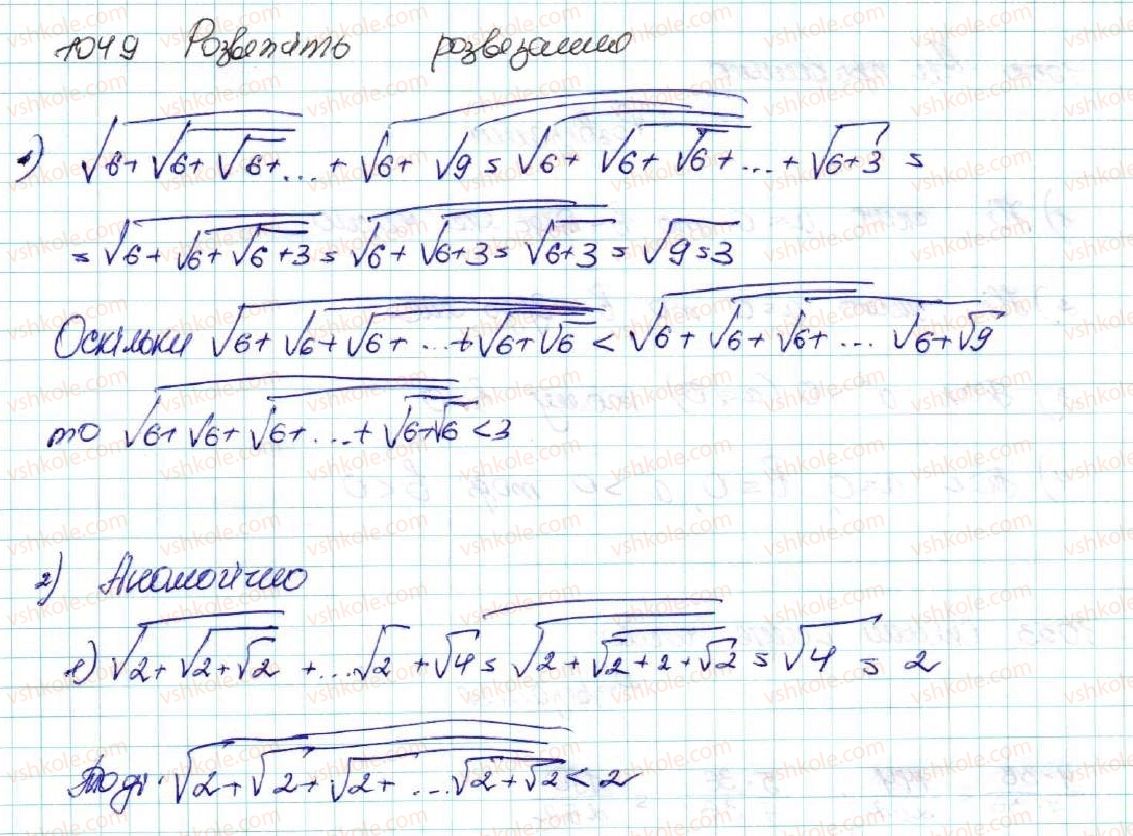 1049 Розвяжіть розвезанно
1) √6+√6+√6+... + √6+ √9 = √6+ √6+√6+...+√6+3 =
= √6+√6+√6+3 = √6+√6+3 = √6+3 = √9 = 3
Оскільки √6+√6+√6+...+√6+√6 < √6+√6+√6+... √6+√9
то √6+√6+√6+...+√6+√6 < 3
2) Аналогічно
1) √2+√2+√2 +...√2 +√4 = √2+√2+2+√2 = √4 = 2
Тоді √2+√2+√2+ ...√2+√2 < 2